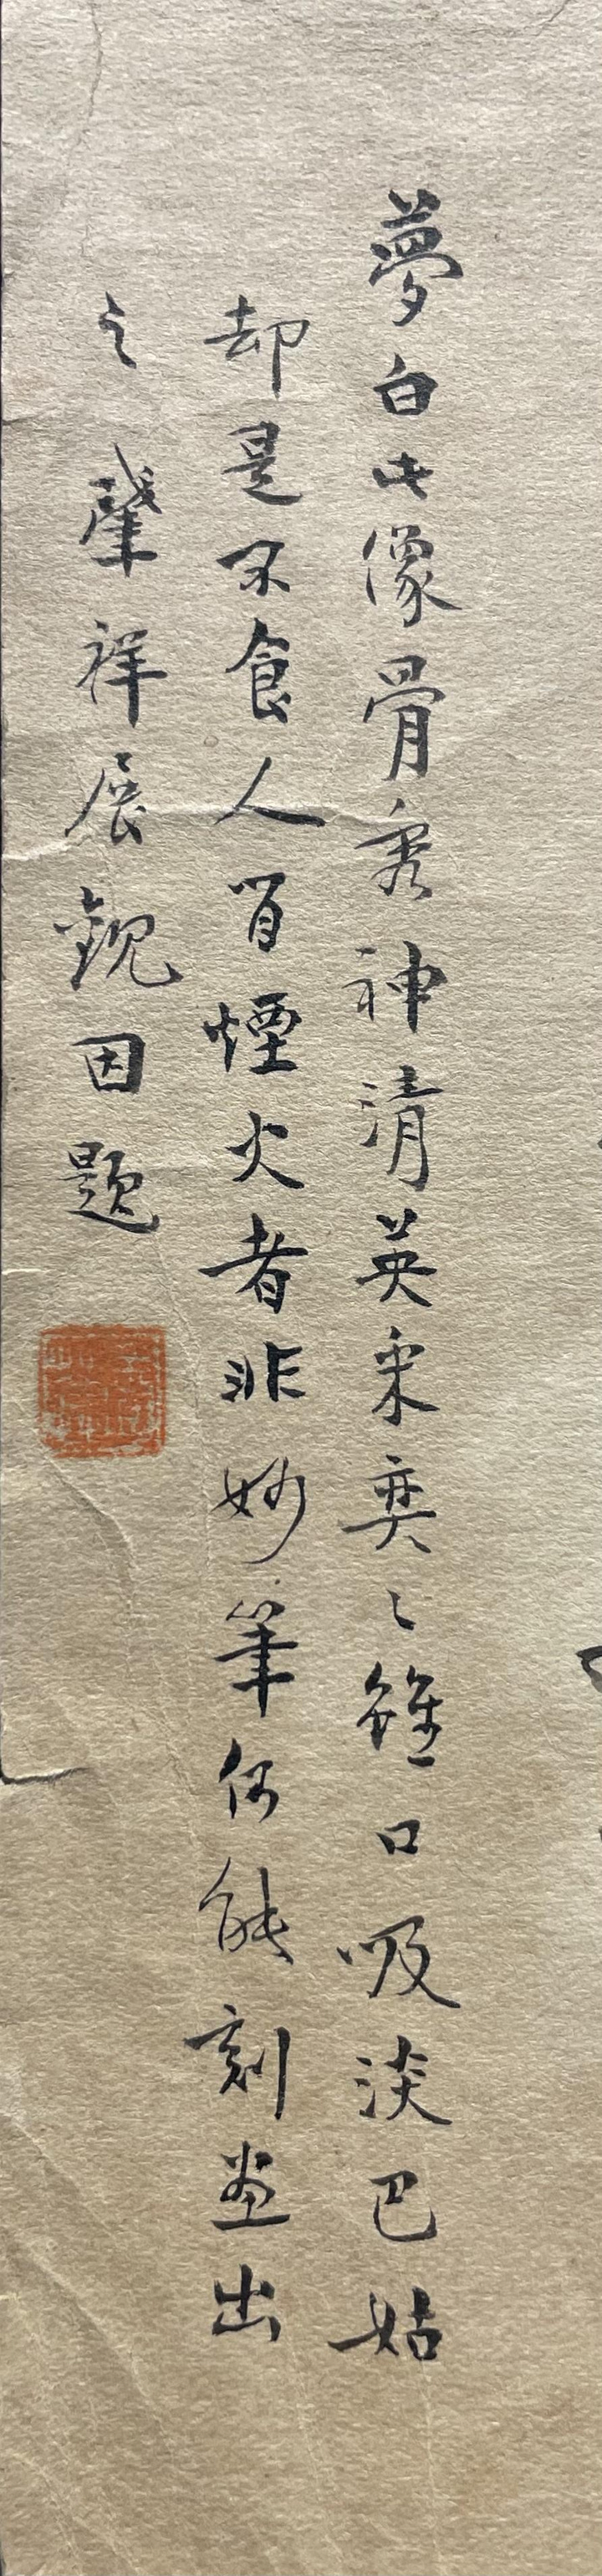 夢白此像骨秀神清英采奕々雖口吸淡巴姑
却是不食人間煙火者非妙筆何能刻畫出
之肇祥展觀因題